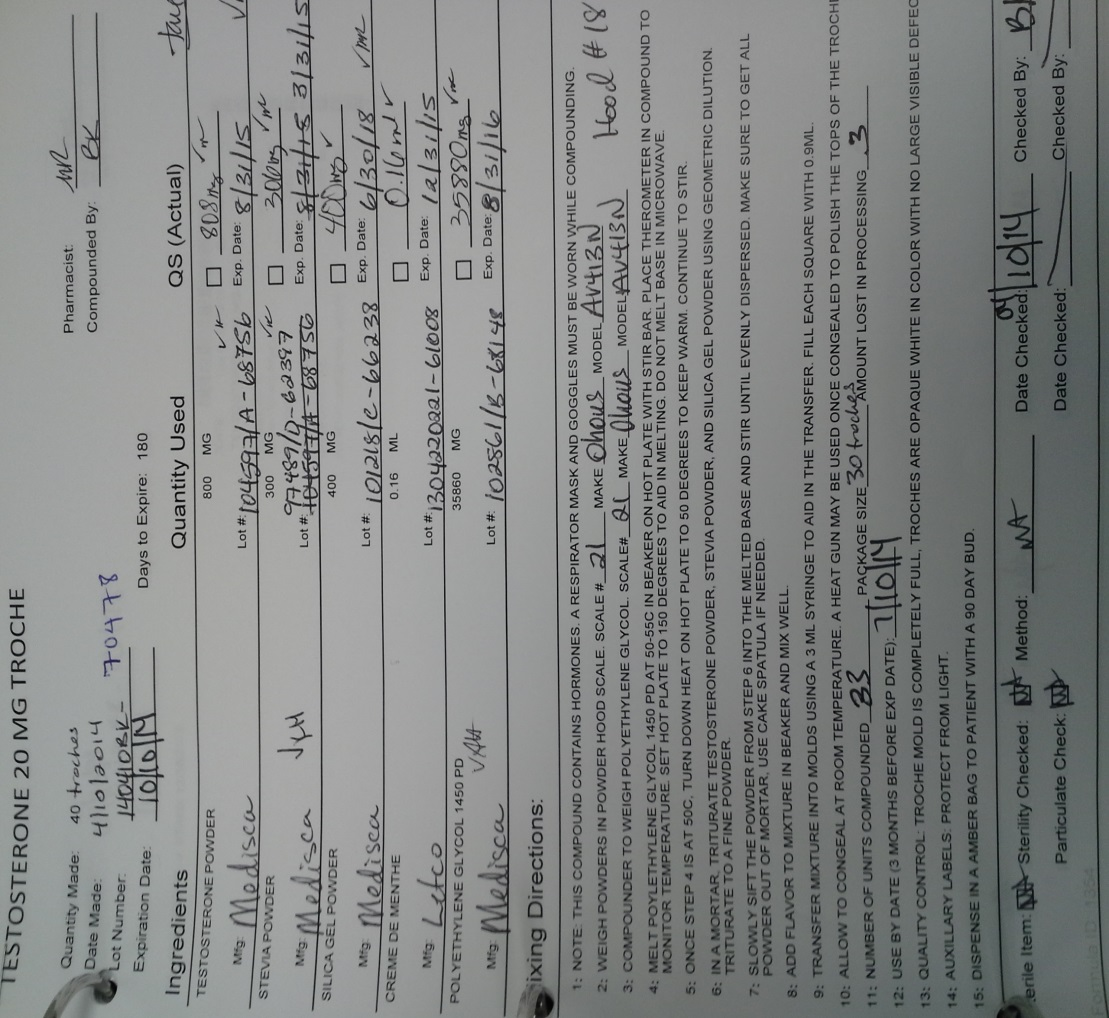 TESTOSTERONE 20 MG TROCHE
Quantity Made: 40 troches
Date Made: 4/10/2014
Lot Number: 140410BK- 70478
Expiration Date: 10/10/14 Days to Expire: 180
Pharmacist: MR
Compounded By: BK
Ingredients Quantity Used QS (Actual)
TESTOSTERONE POWDER 800 MG 808mg
Mfg: Medisca Lot #: 104597/A-68756 Exp. Date: 8/31/15
STEVIA POWDER 300 MG 306mg
Mfg: Medisca Lot #: 97489/D-62397 104597/A-68756 Exp. Date: 8/31/15 3/31/15
SILICA GEL POWDER 400 MG 400mg
Mfg: Medisca Lot #: 101218/C-66238 Exp. Date: 6/30/18
CREME DE MENTHE 0.16 ML 0.16ml
Mfg: Letco Lot #: 1304220221-61008 Exp. Date: 12/31/15
POLYETHYLENE GLYCOL 1450 PD 35860 MG 35880mg
Mfg: Medisca Lot #: 102861/B-68148 Exp. Date: 8/31/16
ixing Directions:
1: NOTE: THIS COMPOUND CONTAINS HORMONES. A RESPIRATOR MASK AND GOGGLES MUST BE WORN WHILE COMPOUNDING.
2: WEIGH POWDERS IN POWDER HOOD SCALE. SCALE # 21 MAKE Ohaus MODEL AV413N Hood # 18
3: COMPOUNDER TO WEIGH POLYETHYLENE GLYCOL. SCALE# 21 MAKE Ohaus MODEL AV413N
4: MELT POYLETHYLENE GLYCOL 1450 PD AT 50-55C IN BEAKER ON HOT PLATE WITH STIR BAR. PLACE THEROMETER IN COMPOUND TO
MONITOR TEMPERATURE. SET HOT PLATE TO 150 DEGREES TO AID IN MELTING. DO NOT MELT BASE IN MICROWAVE.
5: ONCE STEP 4 IS AT 50C, TURN DOWN HEAT ON HOT PLATE TO 50 DEGREES TO KEEP WARM. CONTINUE TO STIR.
6: IN A MORTAR, TRITURATE TESTOSTERONE POWDER, STEVIA POWDER, AND SILICA GEL POWDER USING GEOMETRIC DILUTION.
TRITURATE TO A FINE POWDER.
7: SLOWLY SIFT THE POWDER FROM STEP 6 INTO THE MELTED BASE AND STIR UNTIL EVENLY DISPERSED. MAKE SURE TO GET ALL
POWDER OUT OF MORTAR, USE CAKE SPATULA IF NEEDED.
8: ADD FLAVOR TO MIXTURE IN BEAKER AND MIX WELL.
9: TRANSFER MIXTURE INTO MOLDS USING A 3 ML SYRINGE TO AID IN THE TRANSFER. FILL EACH SQUARE WITH 0.9ML.
10: ALLOW TO CONGEAL AT ROOM TEMPERATURE. A HEAT GUN MAY BE USED ONCE CONGEALED TO POLISH THE TOPS OF THE TROCHE
11: NUMBER OF UNITS COMPOUNDED 33 PACKAGE SIZE 30 troches AMOUNT LOST IN PROCESSING 3
12: USE BY DATE (3 MONTHS BEFORE EXP DATE): 7/10/14
13: QUALITY CONTROL: TROCHE MOLD IS COMPLETELY FULL, TROCHES ARE OPAQUE WHITE IN COLOR WITH NO LARGE VISIBLE DEFEC
14: AUXILLARY LABELS: PROTECT FROM LIGHT.
15: DISPENSE IN A AMBER BAG TO PATIENT WITH A 90 DAY BUD.
erile Item: NA Sterility Checked: NA Method: NA Date Checked: 04/10/14 Checked By: BK
Particulate Check: NA Date Checked: Checked By: